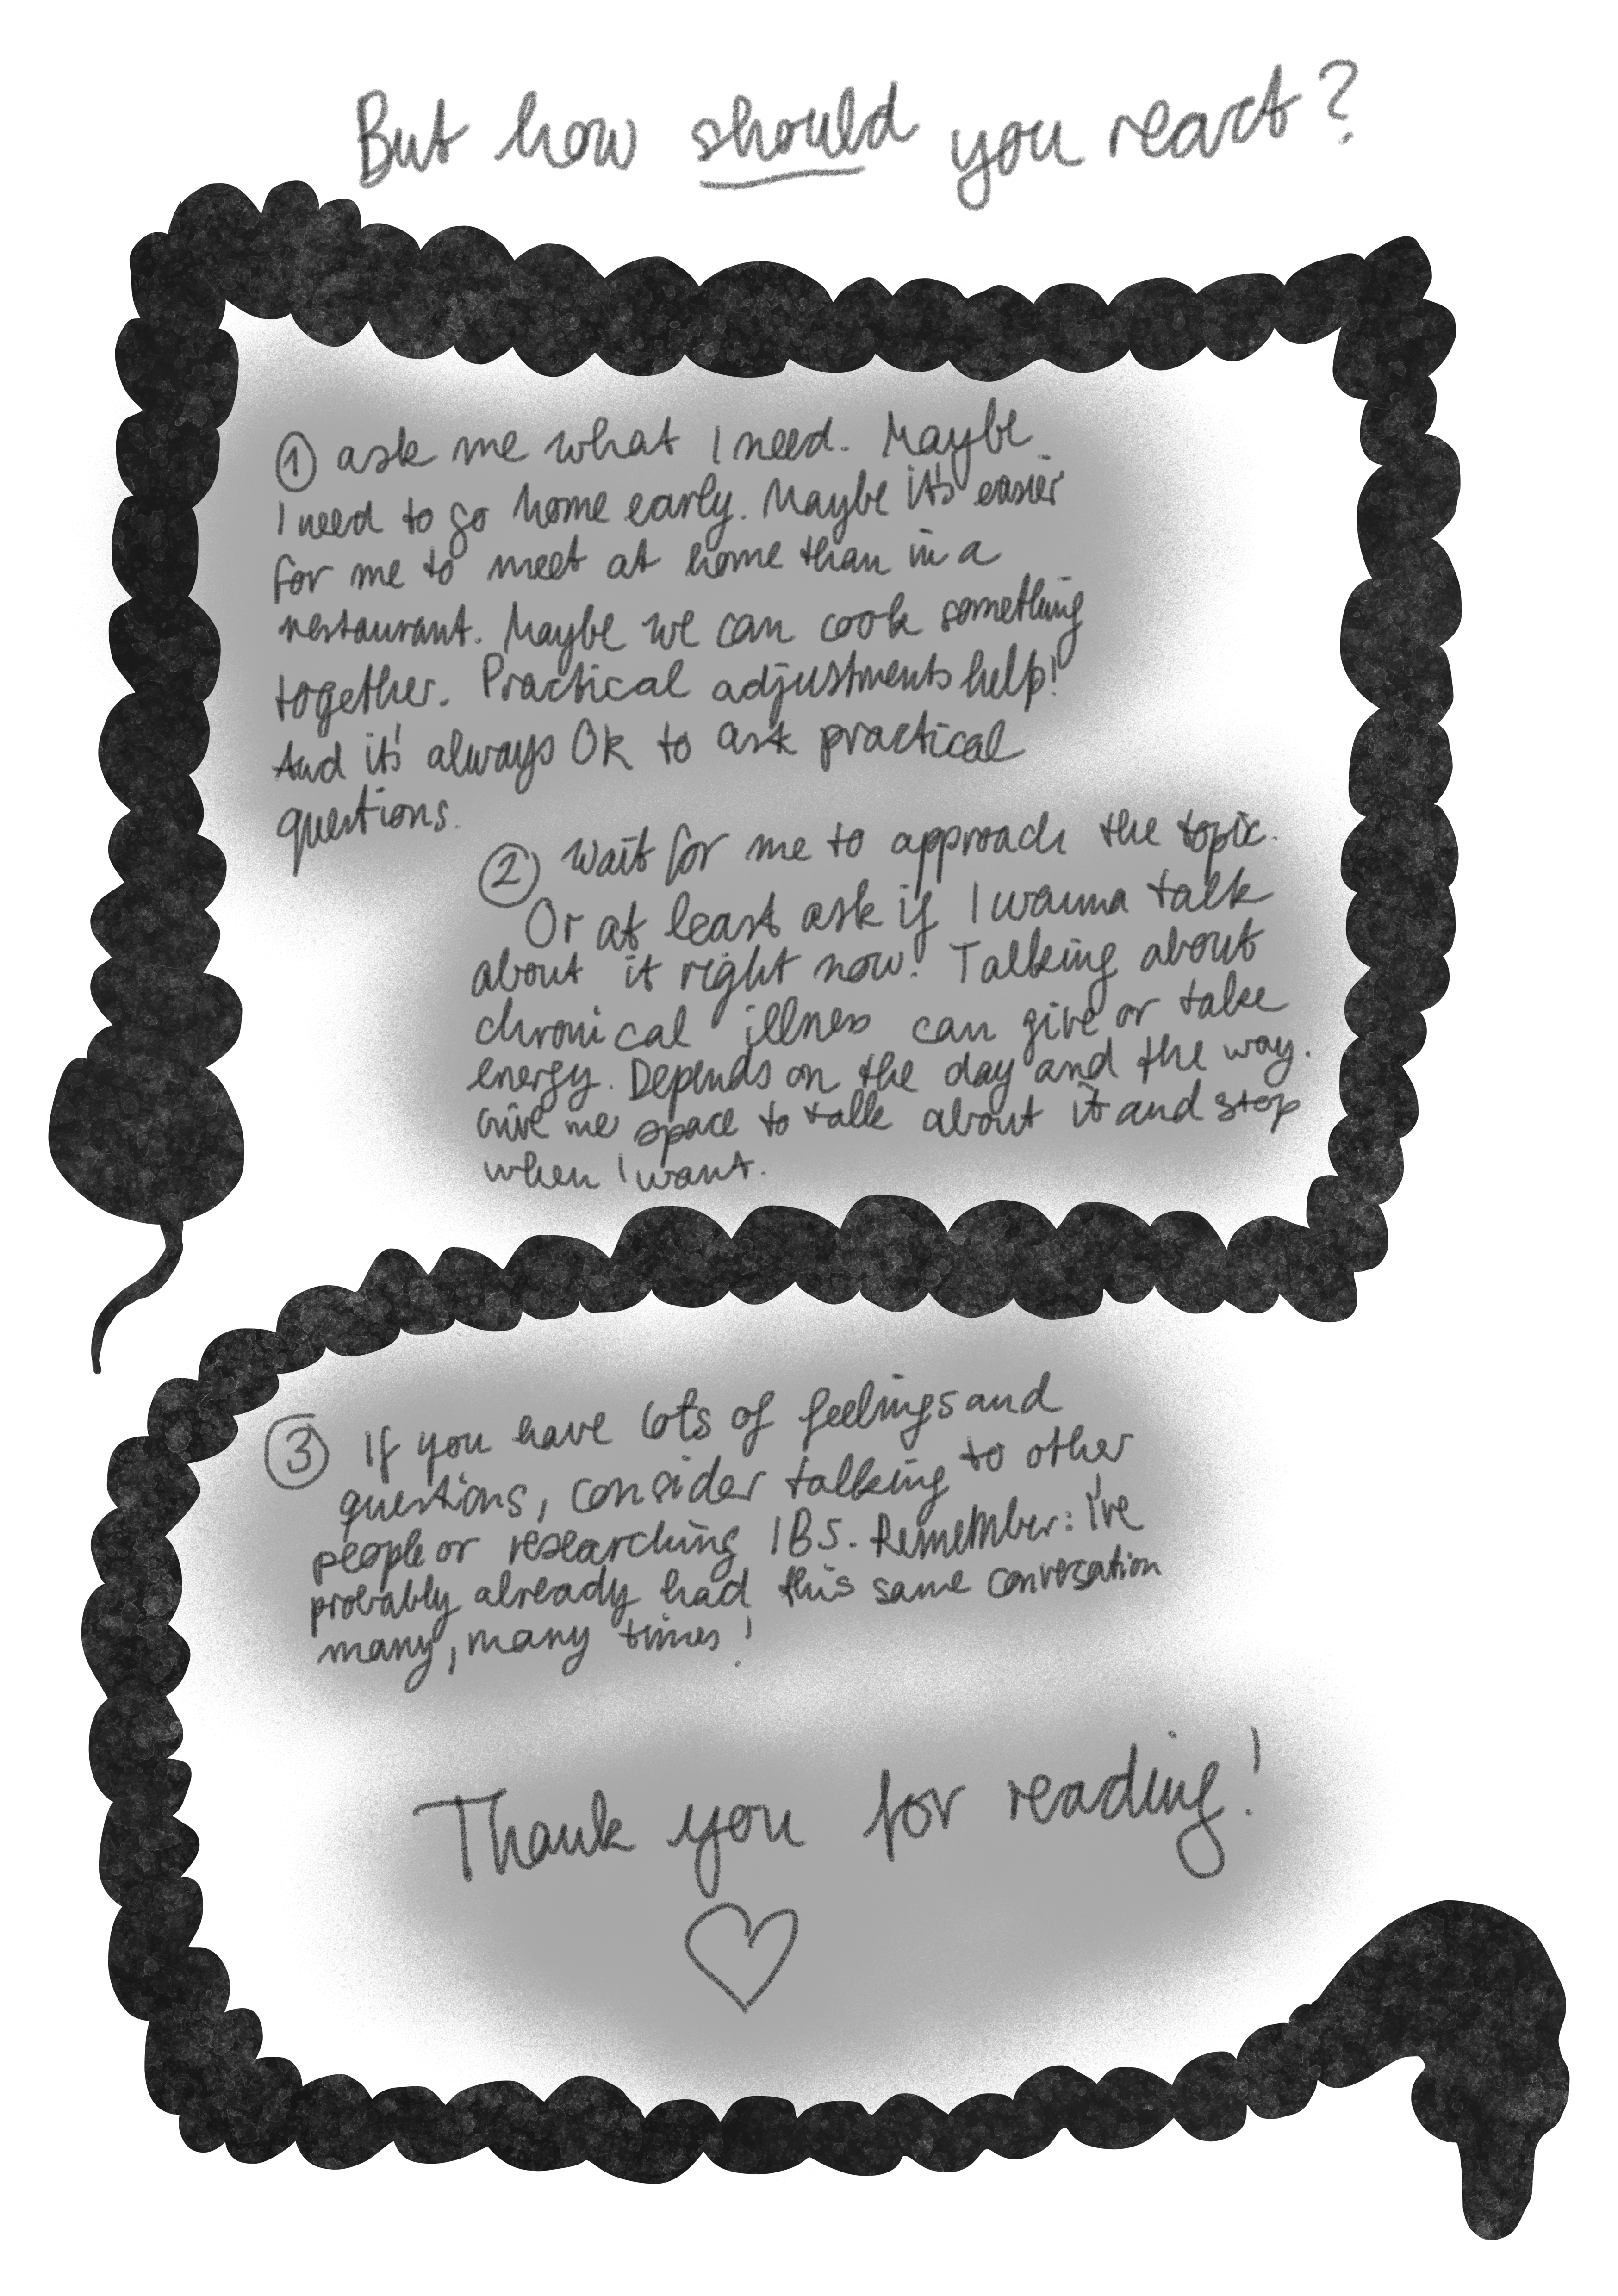 But how should you react?
① ask me what I need. Maybe
I need to go home early. Maybe it's easier
for me to meet at home than in a
restaurant. Maybe we can cook something
together. Practical adjustments help!
And it's always OK to ask practical
questions.
② Wait for me to approach the topic.
Or at least ask if I wanna talk
about it right now! Talking about
chronical illness can give or take
energy. Depends on the day and the way.
Give me space to talk about it and stop
when I want.
③ If you have lots of feelings and
questions, consider talking to other
people or researching IBS. Remember: I've
probably already had this same conversation
many, many times!
Thank you for reading!